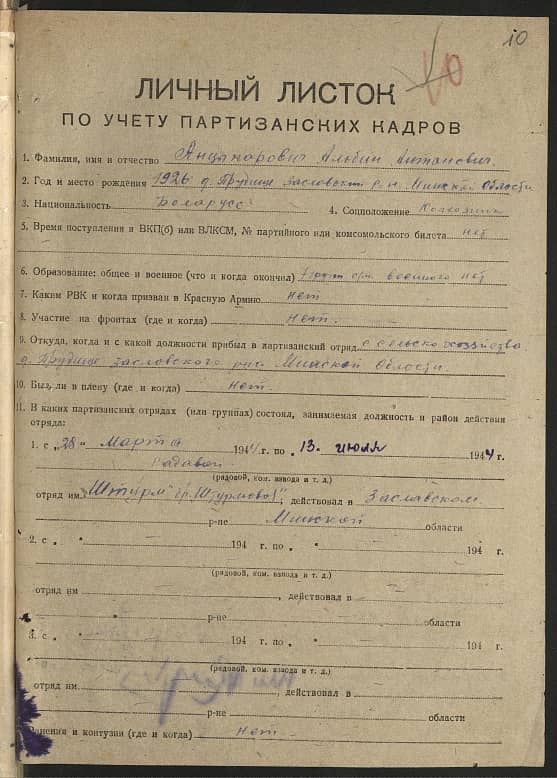 10
ЛИЧНЫЙ ЛИСТОК
ПО УЧЕТУ ПАРТИЗАНСКИХ КАДРОВ
1. Фамилия, имя и отчество Анципарович Альбин Антанович
2. Год и место рождения 1926 д. Прудище Засловский р-н Минской Области
3. Национальность Беларусс 4. Соцположение Колхозник
5. Время поступления в ВКП(б) или ВЛКСМ, № партийного или комсомольского билета нет
6. Образование: общее и военное (что и когда окончил) военного нет
7. Каким РВК и когда призван в Красную Армию нет
8. Участие на фронтах (где и когда) Нет.
9. Откуда, когда и с какой должности прибыл в партизанский отряд с сельско хозяйства
д. Прудище Засловского Минской Области.
10. Был ли в плену (где и когда) Нет.
11. В каких партизанских отрядах (или группах) состоял, занимаемая должность и район действия
отряда:
1. с „28" Марта 1944 г. по 13. июля 1944 г.
Радавой
(рядовой, ком. взвода и т. д.)
отряд им. Штурм бр. Штурмовая", действовал в Заславском
р-не Минской области
2. с „ " 194 г. по „ " 194 г.
(рядовой, ком. взвода и т. д.)
отряд им , действовал в
р-не области
3. с „ " 194 г. по „ " 194 г.
(рядовой, ком. взвода и т. д.)
отряд им действовал в
р-не области
Ранения и контузии (где и когда) нет.